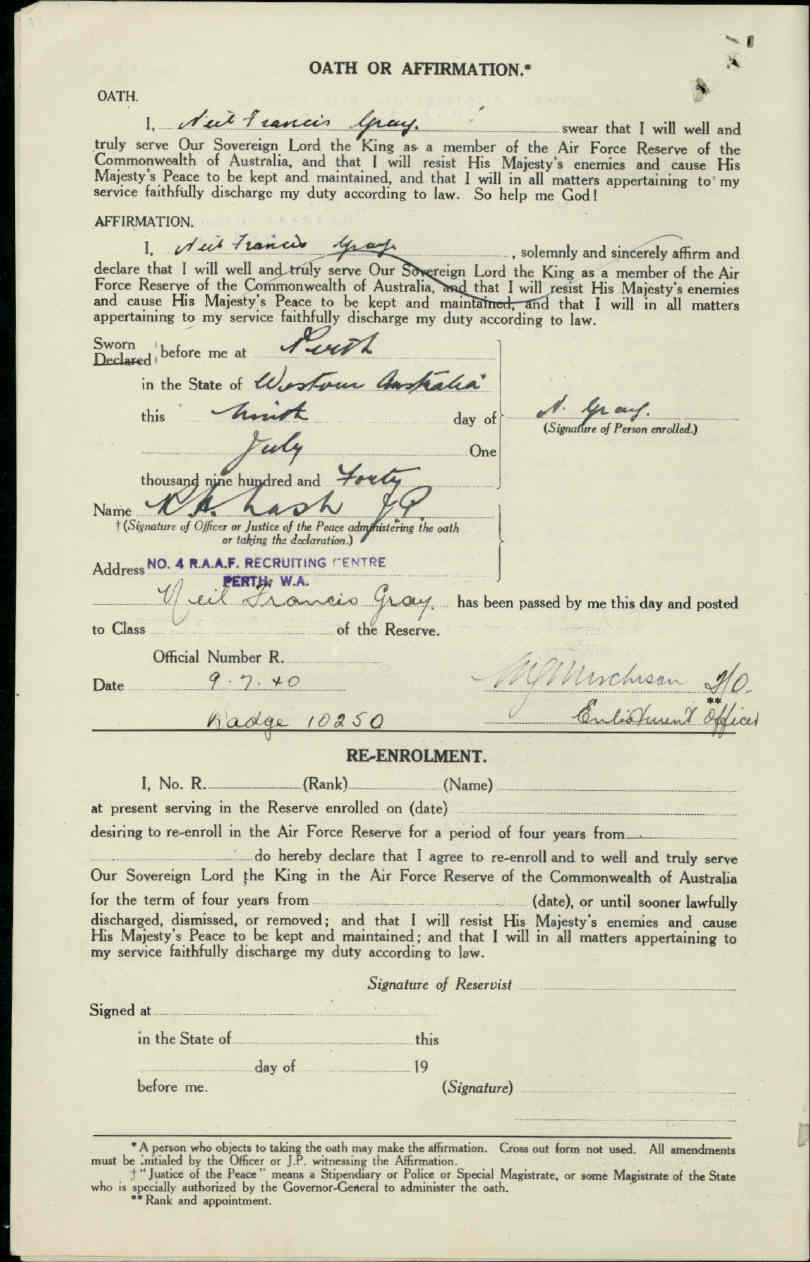 OATH OR AFFIRMATION.*
OATH.
I, Neil Francis Gray. swear that I will well and
truly serve Our Sovereign Lord the King as a member of the Air Force Reserve of the
Commonwealth of Australia, and that I will resist His Majesty's enemies and cause His
Majesty's Peace to be kept and maintained, and that I will in all matters appertaining to my
service faithfully discharge my duty according to law. So help me God!
AFFIRMATION.
I, Neil Francis Gray , solemnly and sincerely affirm and
declare that I will well and truly serve Our Sovereign Lord the King as a member of the Air
Force Reserve of the Commonwealth of Australia, and that I will resist His Majesty's enemies
and cause His Majesty's Peace to be kept and maintained, and that I will in all matters
appertaining to my service faithfully discharge my duty according to law.
Sworn
Declared before me at Perth
in the State of Western Australia
this Ninth day of
N. Gray.
(Signature of Person enrolled.)
July One
thousand nine hundred and Forty
Name Nash J.P.
† (Signature of Officer or Justice of the Peace administering the oath
or taking the declaration.)
Address NO. 4 R.A.A.F. RECRUITING CENTRE
PERTH, W.A.
Neil Francis Gray. has been passed by me this day and posted
to Class of the Reserve.
Official Number R.
Date 9.7.40
Murchison F/O.
**
Badge 10250 Enlistment Officer
RE-ENROLMENT.
I, No. R. (Rank) (Name)
at present serving in the Reserve enrolled on (date)
desiring to re-enroll in the Air Force Reserve for a period of four years from
do hereby declare that I agree to re-enroll and to well and truly serve
Our Sovereign Lord the King in the Air Force Reserve of the Commonwealth of Australia
for the term of four years from (date), or until sooner lawfully
discharged, dismissed, or removed; and that I will resist His Majesty's enemies and cause
His Majesty's Peace to be kept and maintained; and that I will in all matters appertaining to
my service faithfully discharge my duty according to law.
Signature of Reservist
Signed at
in the State of this
day of 19
before me. (Signature)
* A person who objects to taking the oath may make the affirmation. Cross out form not used. All amendments
must be initialed by the Officer or J.P. witnessing the Affirmation.
† "Justice of the Peace" means a Stipendiary or Police or Special Magistrate, or some Magistrate of the State
who is specially authorized by the Governor-General to administer the oath.
** Rank and appointment.